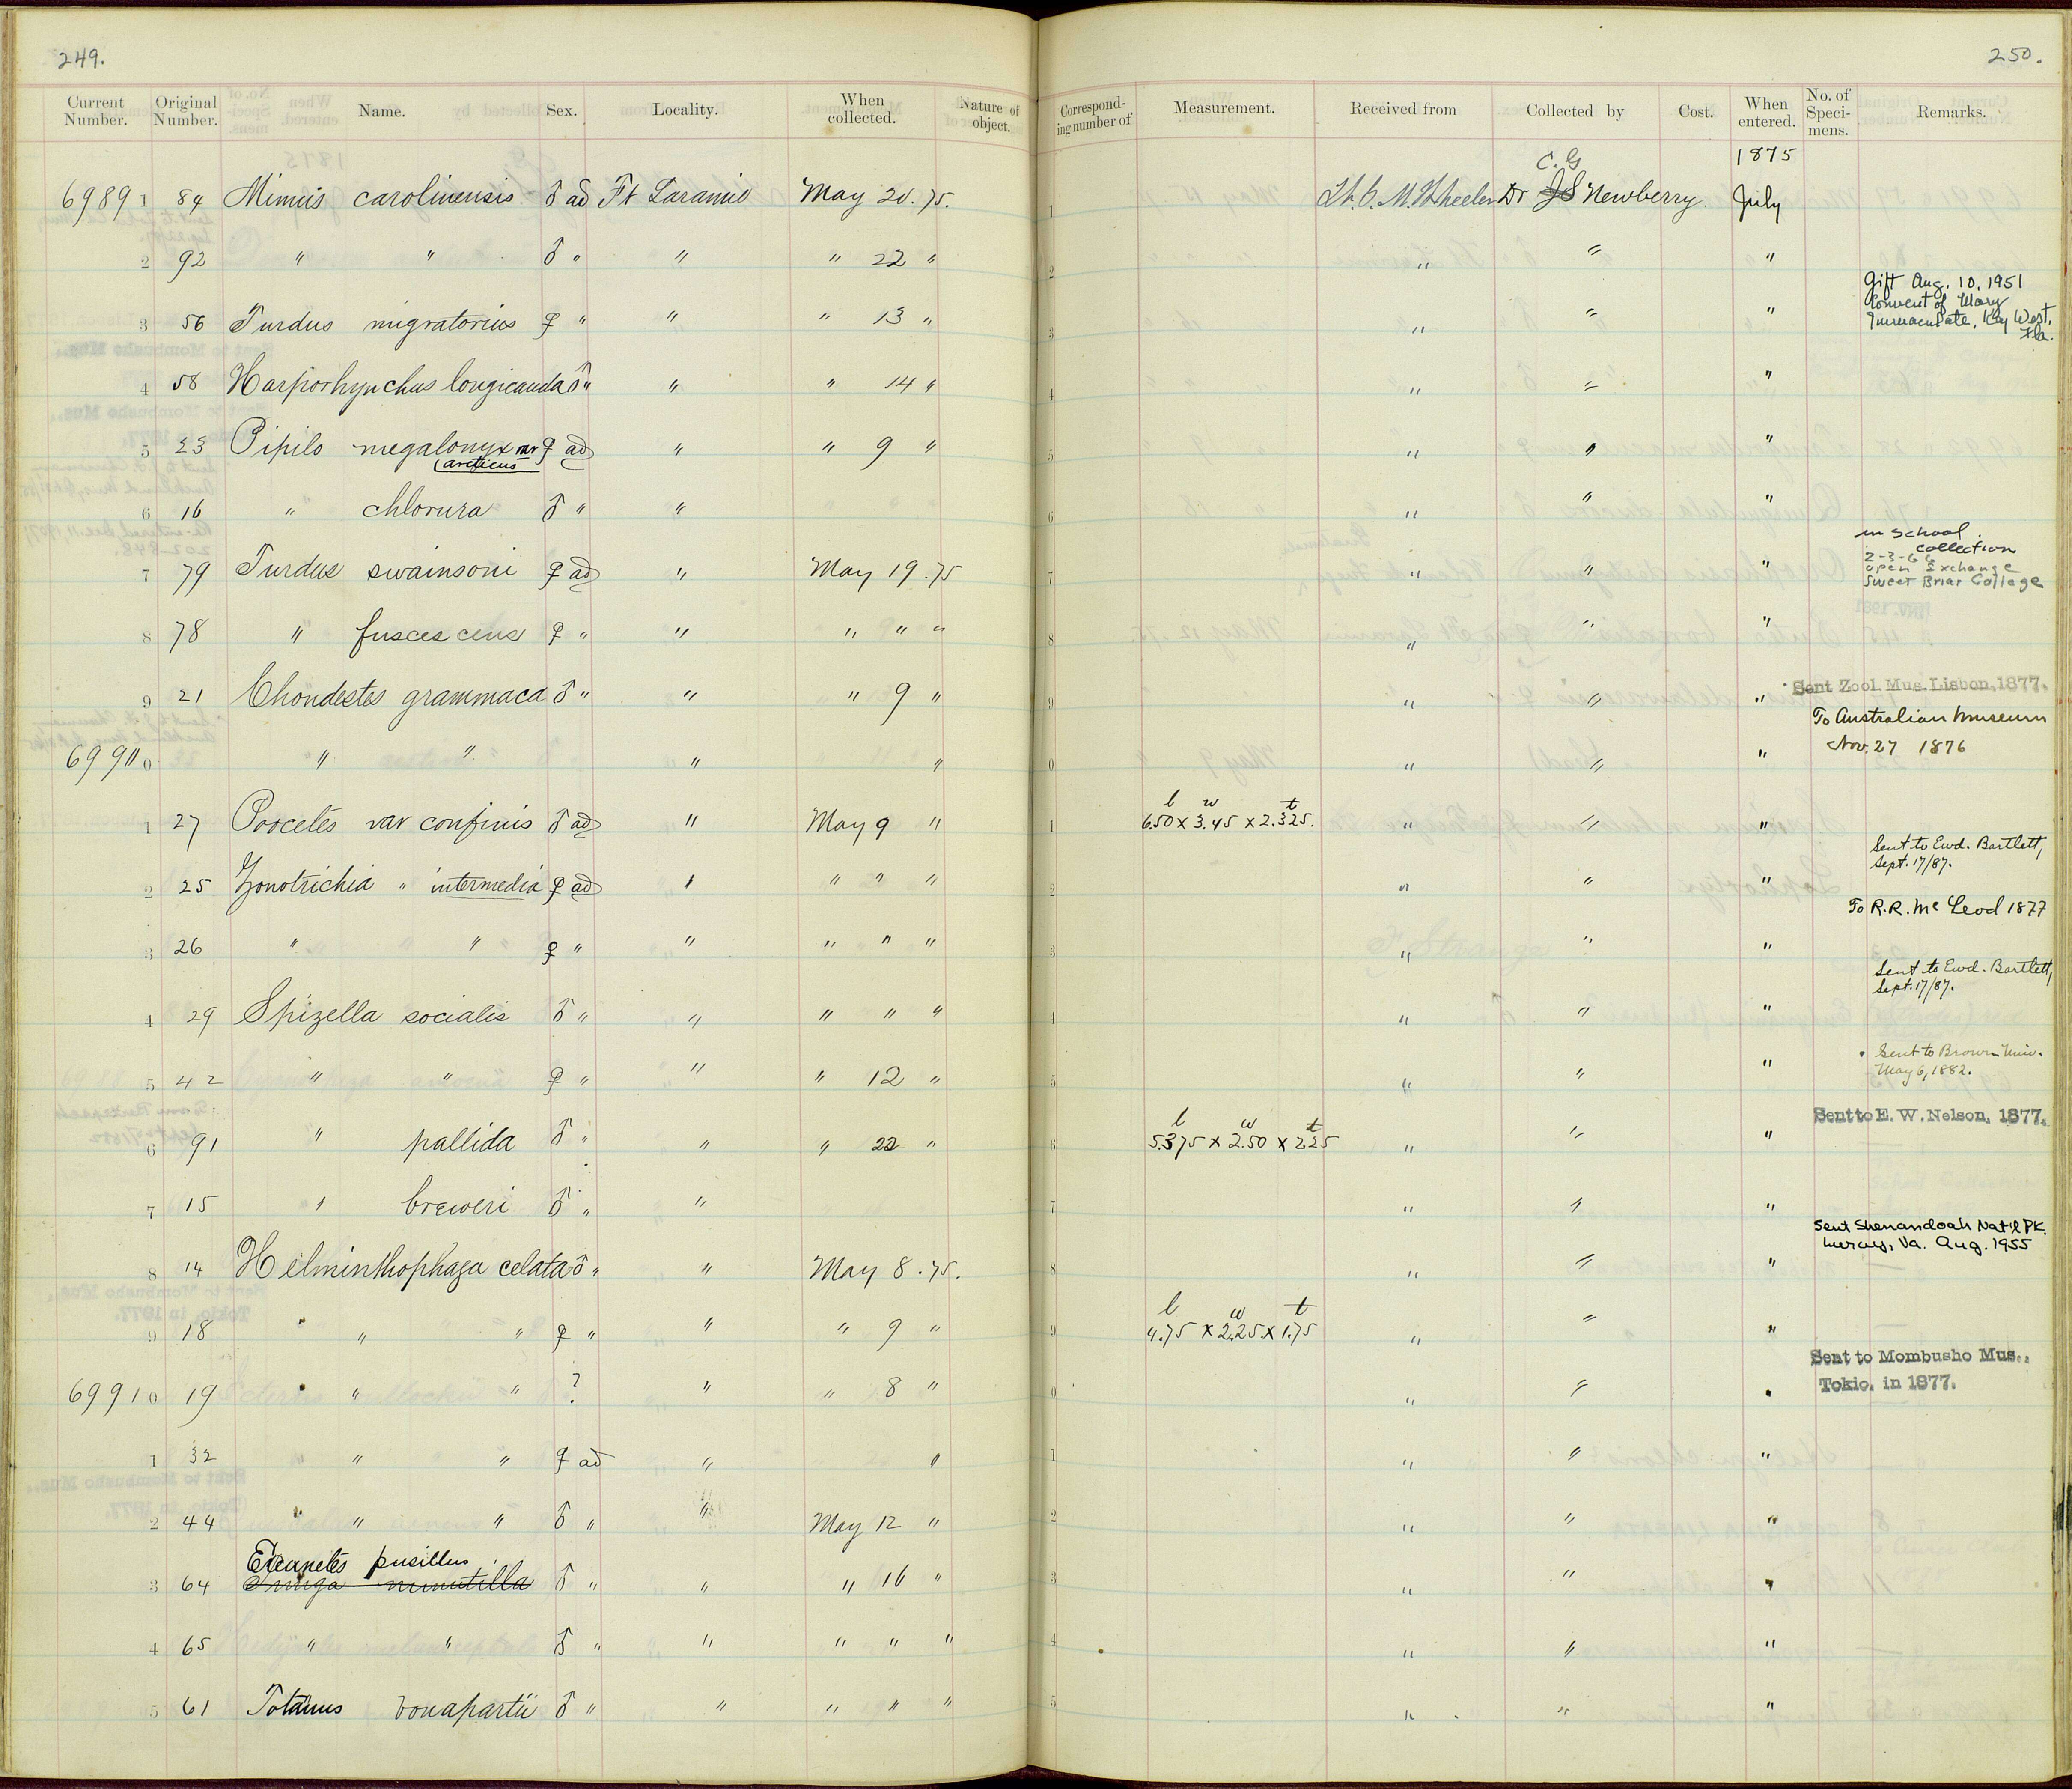 249.
250.
Current Number. Original Number. Name. Sex. Locality. When collected. Nature of object. Correspond-ing number of Measurement. Received from Collected by Cost. When entered. No. of Speci-mens. Remarks.
C. G 1875
6989 1 84 Mimus carolinensis ♂ ad Ft Laramie May 20. 75. 1 Lt. G. M. Wheeler Dr JS Newberry. July
2 92 " " ♂ " " " 22 " 2 " " "
Gift Aug. 10, 1951
Convent of Mary
Immaculate, Key West,
Fla.
3 56 Turdus migratorius ♀ " " " 13 " 3 " " "
4 58 Harporhynchus longicauda ♂ " " " 14 " 4 " " "
5 23 Pipilo megalonyx var ♀ ad " " 9 " 5 " " "
(arcticus
6 16 " chlorura ♂ " " 6 " " "
in school
collection
2-3-66
open Exchange
Sweet Briar College
7 79 Turdus swainsoni ♀ ad " May 19. 75 7 " " "
8 78 " fuscescens ♀ " " " " " 8 " " "
9 21 Chondestes grammaca ♂ " " " 9 " 9 " " " Sent Zool. Mus. Lisbon, 1877.
To Australian Museum
Nov. 27 1876
6990 0 " " " " 0 " " "
l w t
1 27 Poocetes var confinis ♂ ad " May 9 " 1 6.50 x 3.45 x 2.325. " " "
Sent to Ewd. Bartlett,
Sept. 17/87.
2 25 Zonotrichia " intermedia ♀ ad " " " " 2 " " "
To R. R. McLeod 1877
3 26 " " ♀ " " " " " 3 " " "
Sent to Ewd. Bartlett,
Sept. 17/87.
4 29 Spizella socialis ♂ " " " " " 4 " " "
Sent to Brown Univ.
May 6, 1882.
5 42 " " ♀ " " " 12 " 5 " " "
Sent to E. W. Nelson, 1877.
l w t
6 91 " pallida ♂ " " " 22 " 6 5.375 x 2.50 x 2.25 " " "
7 15 " breweri ♂ " " 7 " " "
Sent Shenandoah Nat'l Pk.
Luray, Va. Aug. 1955
8 14 Helminthophaga celata ♂ " " May 8. 75. 8 " " "
l w t
9 18 " " " ♀ " " " 9 " 9 4.75 x 2.25 x 1.75 " " "
Sent to Mombusho Mus.,
Tokio, in 1877.
6991 0 19 " " " ? " " 8 " 0 " " "
1 32 " " " ♀ ad " " 1 " " "
2 44 " " " ♂ " " May 12 " 2 " " "
Ereunetes pusillus
3 64 Tringa minutilla ♂ " " " 16 " 3 " " "
4 65 " " ♂ " " " " " 4 " " "
5 61 Totanus bonapartii ♂ " " " " " 5 " " "